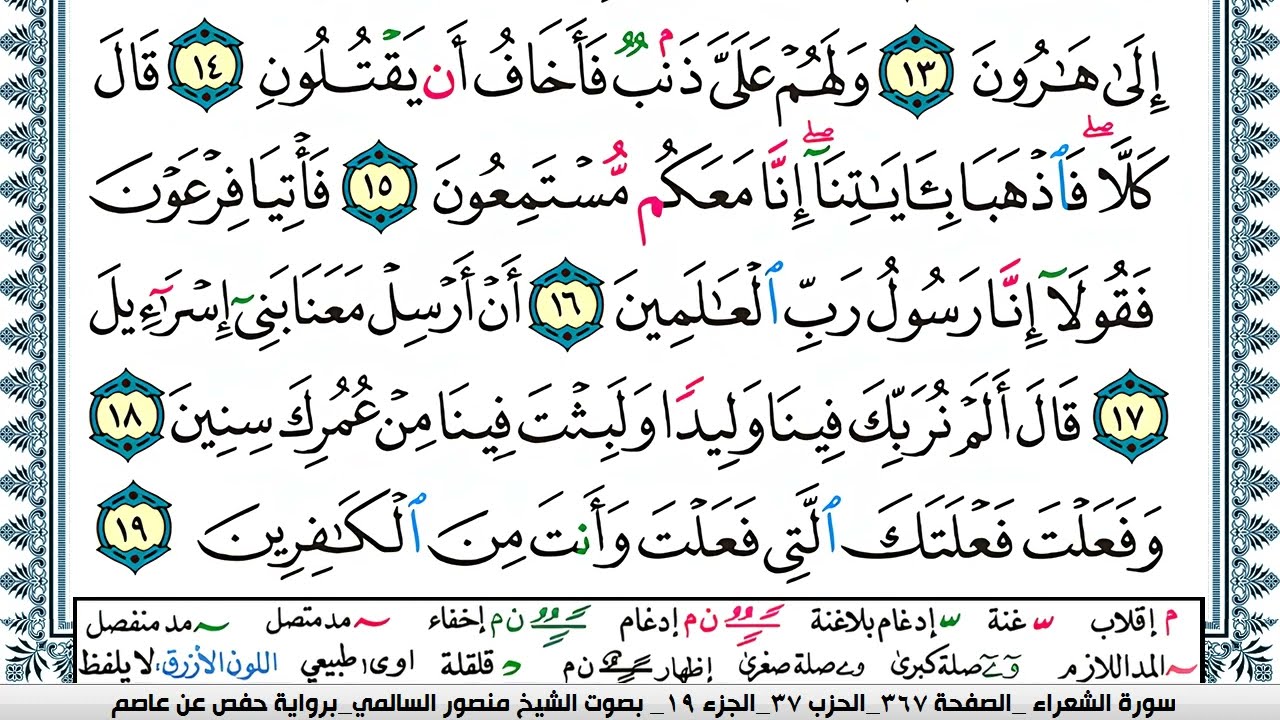 إِلَىٰ هَٰرُونَ ١٣ وَلَهُمْ عَلَىَّ ذَنۢبٌ فَأَخَافُ أَن يَقْتُلُونِ ١٤ قَالَ
كَلَّا ۖ فَٱذْهَبَا بِـَٔايَٰتِنَآ ۖ إِنَّا مَعَكُم مُّسْتَمِعُونَ ١٥ فَأْتِيَا فِرْعَوْنَ
فَقُولَآ إِنَّا رَسُولُ رَبِّ ٱلْعَٰلَمِينَ ١٦ أَنْ أَرْسِلْ مَعَنَا بَنِىٓ إِسْرَٰٓءِيلَ
١٧ قَالَ أَلَمْ نُرَبِّكَ فِينَا وَلِيدًا وَلَبِثْتَ فِينَا مِنْ عُمُرِكَ سِنِينَ ١٨
وَفَعَلْتَ فَعْلَتَكَ ٱلَّتِى فَعَلْتَ وَأَنتَ مِنَ ٱلْكَٰفِرِينَ ١٩
م إقلاب س غنة س إدغام بلاغنة ن م إدغام ن م إخفاء مد متصل مد منفصل
المد اللازم و ے صلة كبرى و ے صلة صغرى إظهار ن م د قلقلة اوى طبيعي اللون الأزرق: لا يلفظ
سورة الشعراء _الصفحة ٣٦٧_الحزب ٣٧_الجزء ١٩_ بصوت الشيخ منصور السالمي_برواية حفص عن عاصم